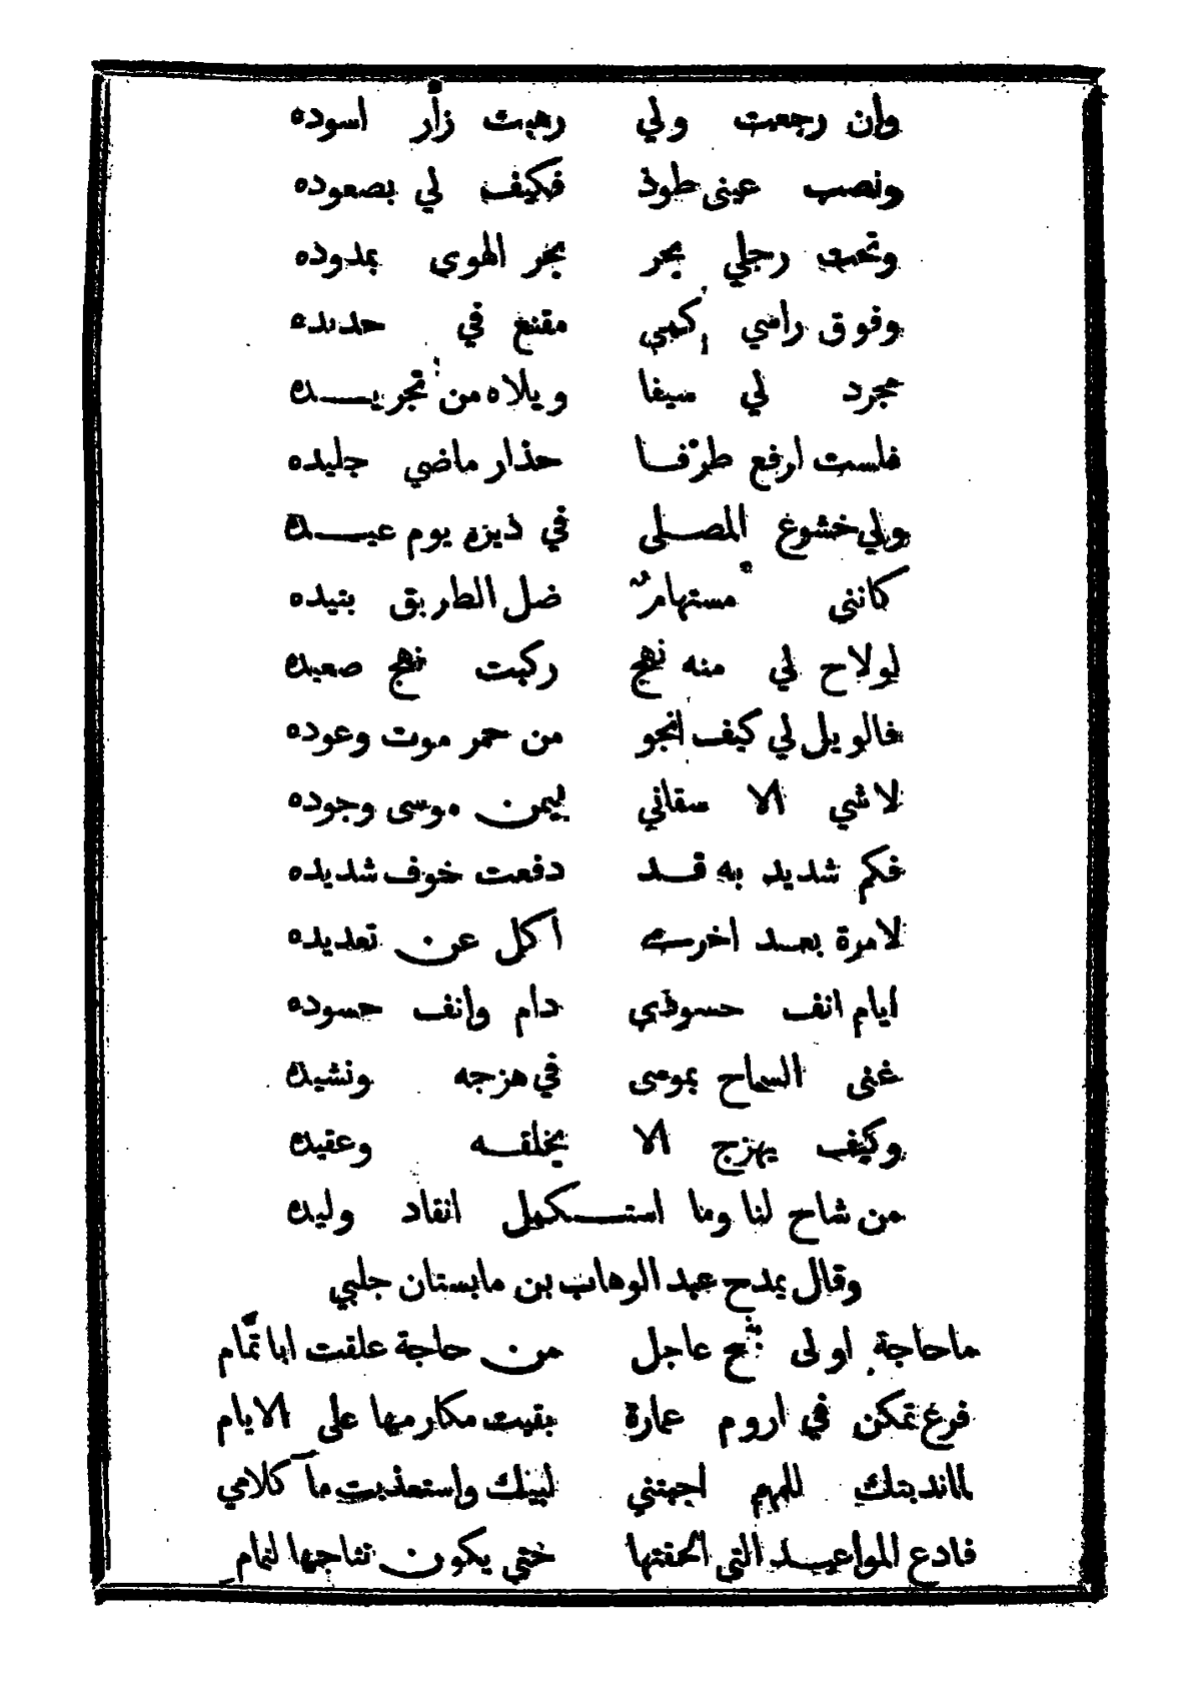 وإن رجعت ولي رهبت زأر اسوده
ونصب عيني طوذ فكيف لي بصعوده
وتحت رجلي بحر بحر الهوى بمدوده
وفوق راضي كهي مقنع في حديده
مجرد لي سيفا ويلاه من تجريـــده
فلست ارفع طرفـا حذار ماضي جليده
ولي خشوع المصـلى في ذيزه يوم عيـــده
كانني مستهامٌ ضل الطريق بنيده
لولاح لي منه نهج ركبت نهج صعيده
فالويل لي كيف انجو من حمر موت وعوده
لاشي الا سقاني بيمن موسى وجوده
فكم شديد به قـد دفعت خوف شديده
لامرة بعـد اخرى اكل عن تعديده
ايام انف حسوذي دام وإنف حسوده
غنى السماح بموسى في هزجه ونشيده
وكيف يهزج الا بخلقـه وعقيده
من شاح لنا وما استـكمل انقاد وليده
وقال يمدح عبد الوهاب بن مابستان جلبي
ماحاجة اولى بنجح عاجل من حاجة علقت ابا تمّام
فرغ تمكن في اروم عمارة بقيت مكارمها على الايام
لماندبتك للمهم اجبتني لبينك وإستعذبت مآ كلامي
فادع المواعيـد التي الحفتها ختي يكون نتاجها لتمام